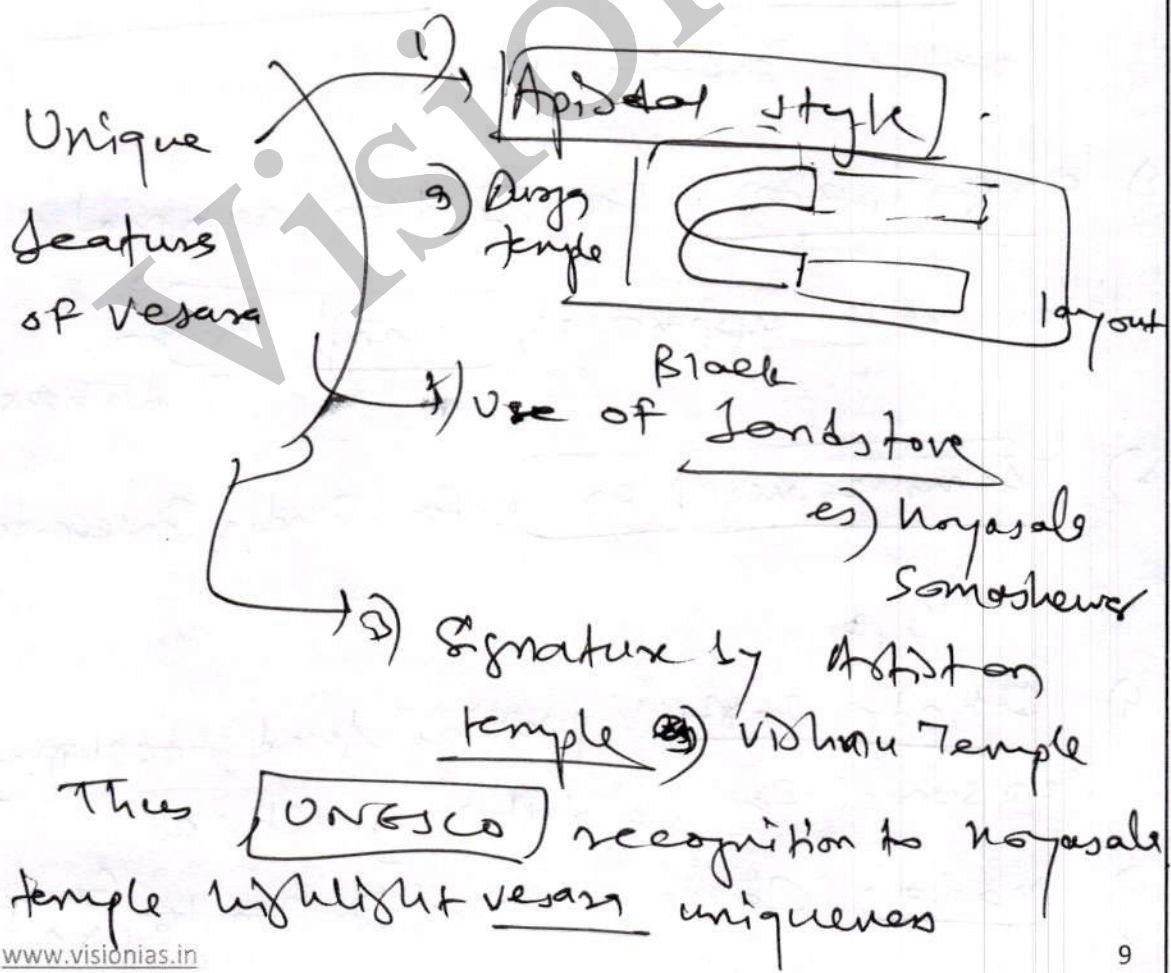 Unique
features
of Vesara
1) Apsidal style
eg) Durga
temple
layout
2) Use of Black Sandstone
eg) Hoyasala
Someshewar
3) Signature by Artist on
temple eg) Vishnu Temple
Thus UNESCO recognition to Hoyasala
temple highlight vesara uniqueness
www.visionias.in
9
Vision